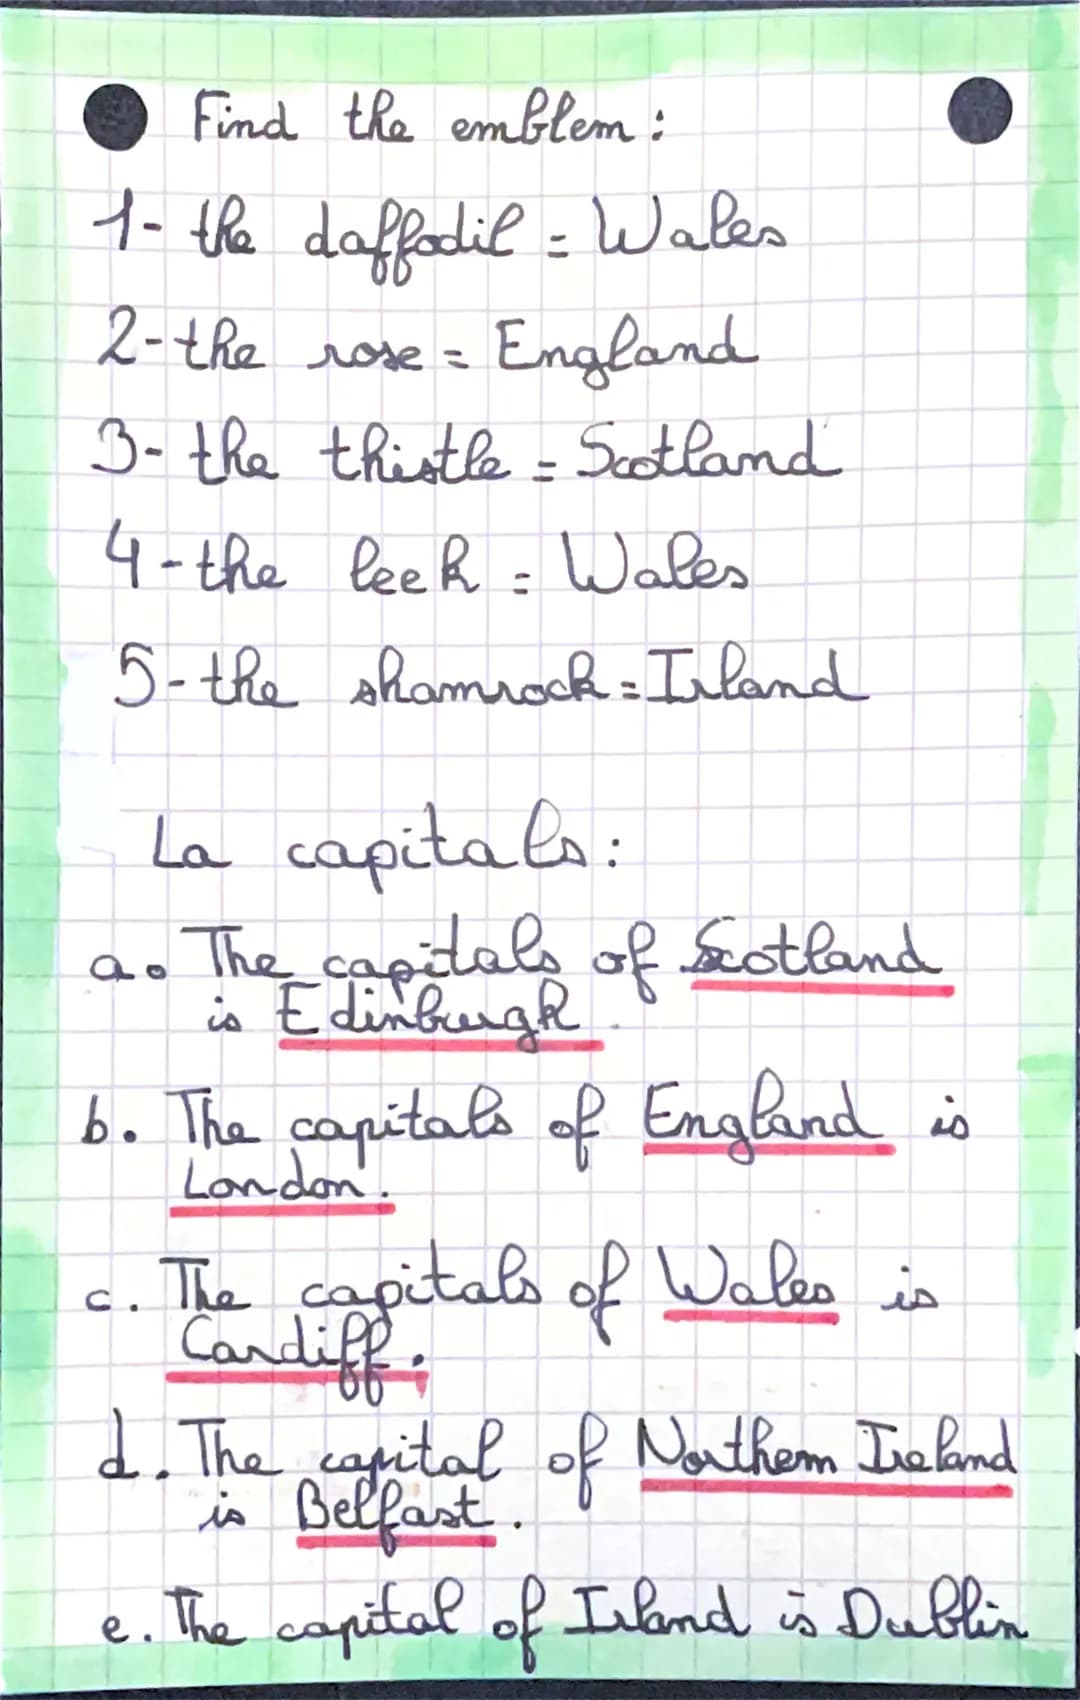 Find the emblem :
1- the daffodil = Wales
2- the rose = England
3- the thistle = Scotland
4- the leek = Wales
5- the shamrock = Irland
La capitals :
a. The capitals of Scotland
is Edinburgh.
b. The capitals of England is
London.
c. The capitals of Wales is
Cardiff.
d. The capital of Northern Ireland
is Belfast.
e. The capital of Irland is Dublin